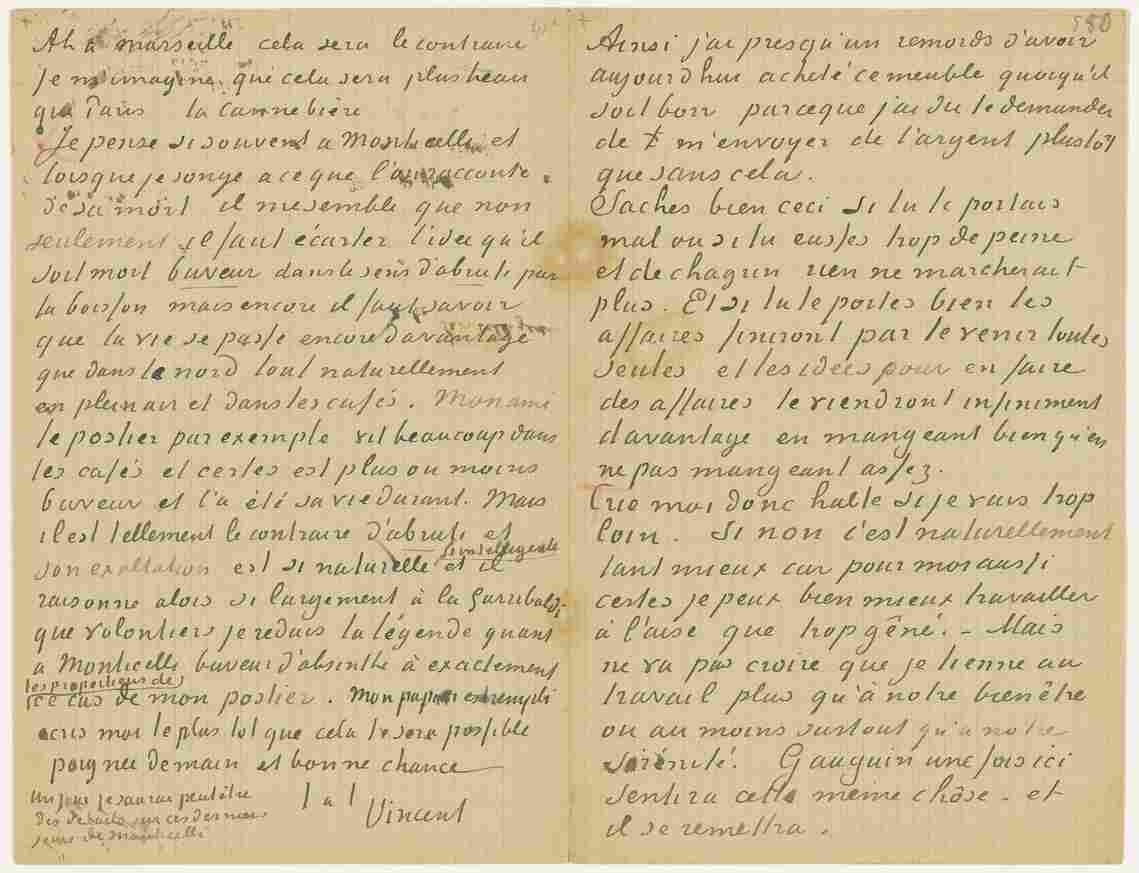 Ah à marseille cela sera le contraire
je m'imagine que cela sera plus beau
que Paris la cannebière
Je pense si souvent a Monticelli et
lorsque je songe a ce que l'on raconte
de sa mort il me semble que non
seulement il faut écarter l'idée qu'il
soit mort buveur dans le sens d'abruti par
la boisson mais encore il faut savoir
que la vie se passe encore davantage
que dans le nord tout naturellement
en plein air et dans les cafés. Mon ami
le postier par exemple vit beaucoup dans
les cafés et certes est plus ou moins
buveur et l'a été sa vie durant. Mais
il est tellement le contraire d'abruti et
son exaltation est si naturelle si intelligente et il
raisonne alors si largement à la Garribaldi
que volontiers je reduis la légende quant
a Monticelli buveur d'absinthe à exactement
les proportions de
ce cas de mon postier. Mon papier est rempli
ecris moi le plus tot que cela te sera possible
poignee de main et bonne chance
t à t Vincent
Un jour je saurai peut être
des details sur ces derniers
jours de Monticelli
580
Ainsi j'ai presqu'un remords d'avoir
aujourd'hui acheté ce meuble quoiqu'il
soit bon parceque j'ai du te demander
de m'envoyer de l'argent plus tôt
que sans cela.
Saches bien ceci si tu te portais
mal ou si tu eusses trop de peine
et de chagrin rien ne marcherait
plus. Et si tu te portes bien les
affaires finiront par te venir toutes
seules et les idées pour en faire
des affaires te viendront infiniment
davantage en mangeant bien qu'en
ne pas mangeant assez.
Crie moi donc halte si je vais trop
loin. Si non c'est naturellement
tant mieux car pour moi aussi
certes je peux bien mieux travailler
à l'aise que trop gêné. – Mais
ne va pas croire que je tienne au
travail plus qu'à notre bien être
ou au moins surtout qu'a notre
sérénité. Gauguin une fois ici
sentira cette même chôse – et
il se remettra.